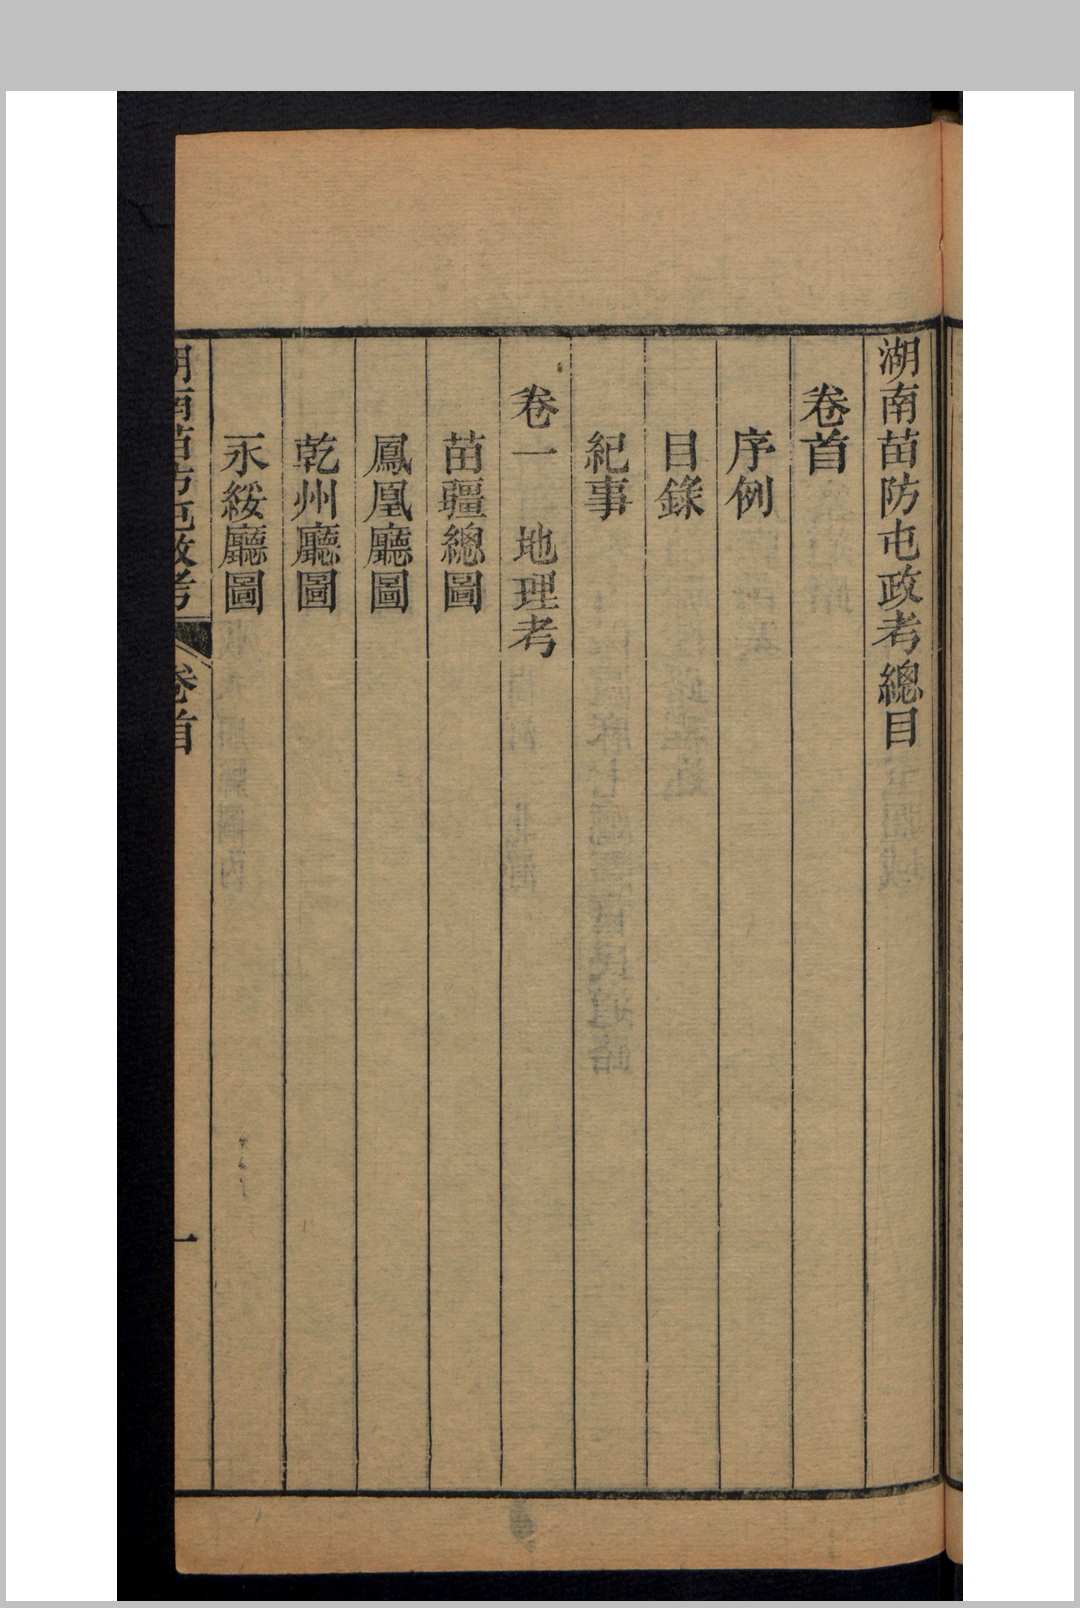 湖南苗防屯政考總目
卷首
序例
目錄
紀事
卷一 地理考
苗疆總圖
鳳凰廳圖
乾州廳圖
永綏廳圖
湖南苗防屯政考 卷首 一